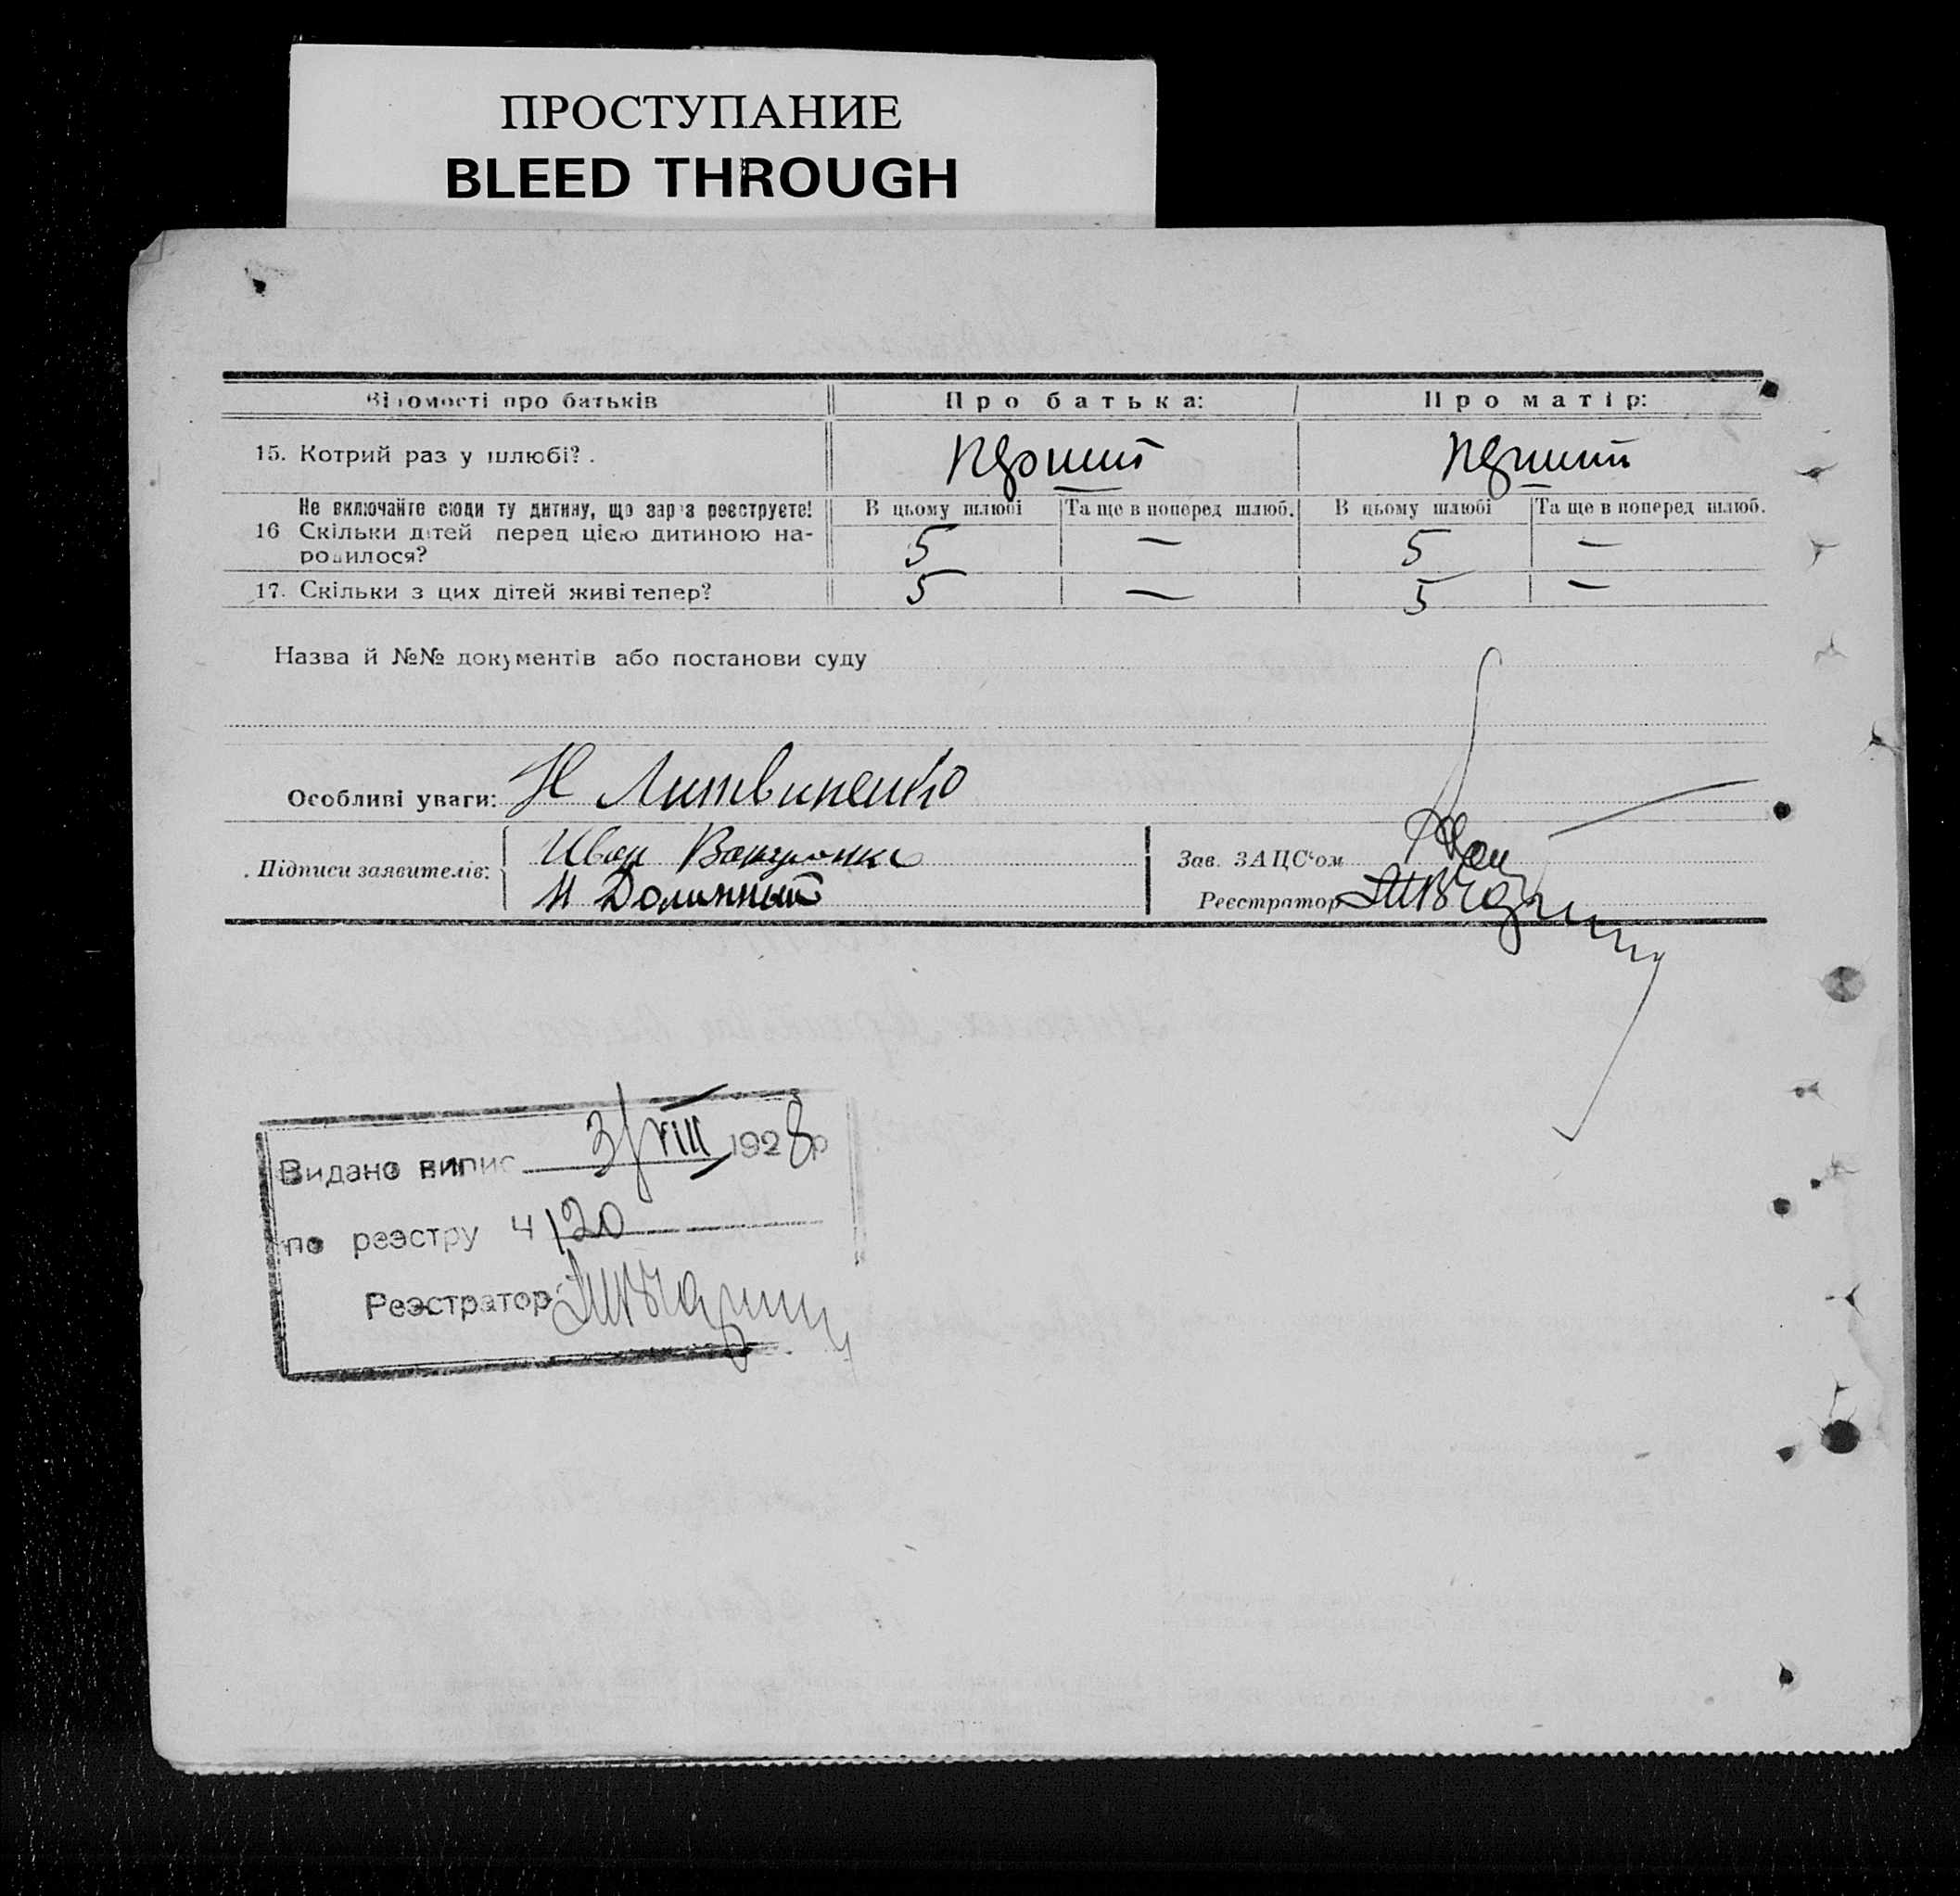 ПРОСТУПАНИЕ
BLEED THROUGH
Відомості про батьків Про батька: Про матір:
15. Котрий раз у шлюбі? . перший перший
Не включайте сюди ту дитину, що зараз реєструєте! В цьому шлюбі Та ще в поперед шлюб. В цьому шлюбі Та ще в поперед шлюб.
16 Скільки дітей перед цією дитиною на-
родилося? 5 — 5 —
17. Скільки з цих дітей живі тепер? 5 — 5 —
Назва й №№ документів або постанови суду
Особливі уваги: Н Литвиненко
Підписи заявителів: Иван
И Долинный
Зав. ЗАЦС'ом
Реєстратор
Видано випис 3/VIII 1928р
по реэстру ч 120
Реэстратор